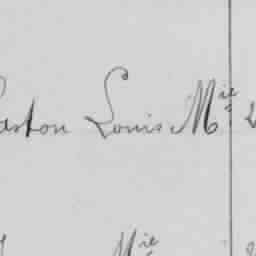 aston Louis Mie 2
Mie